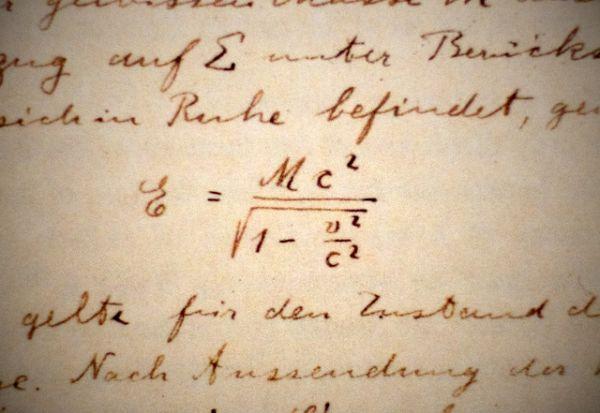 gewissen Masse M
zug auf Σ unter Berücks
sich in Ruhe befindet, ge
E = Mc² / √(1 - v²/c²)
gelte für den Zustand d
se. Nach Aussendung der